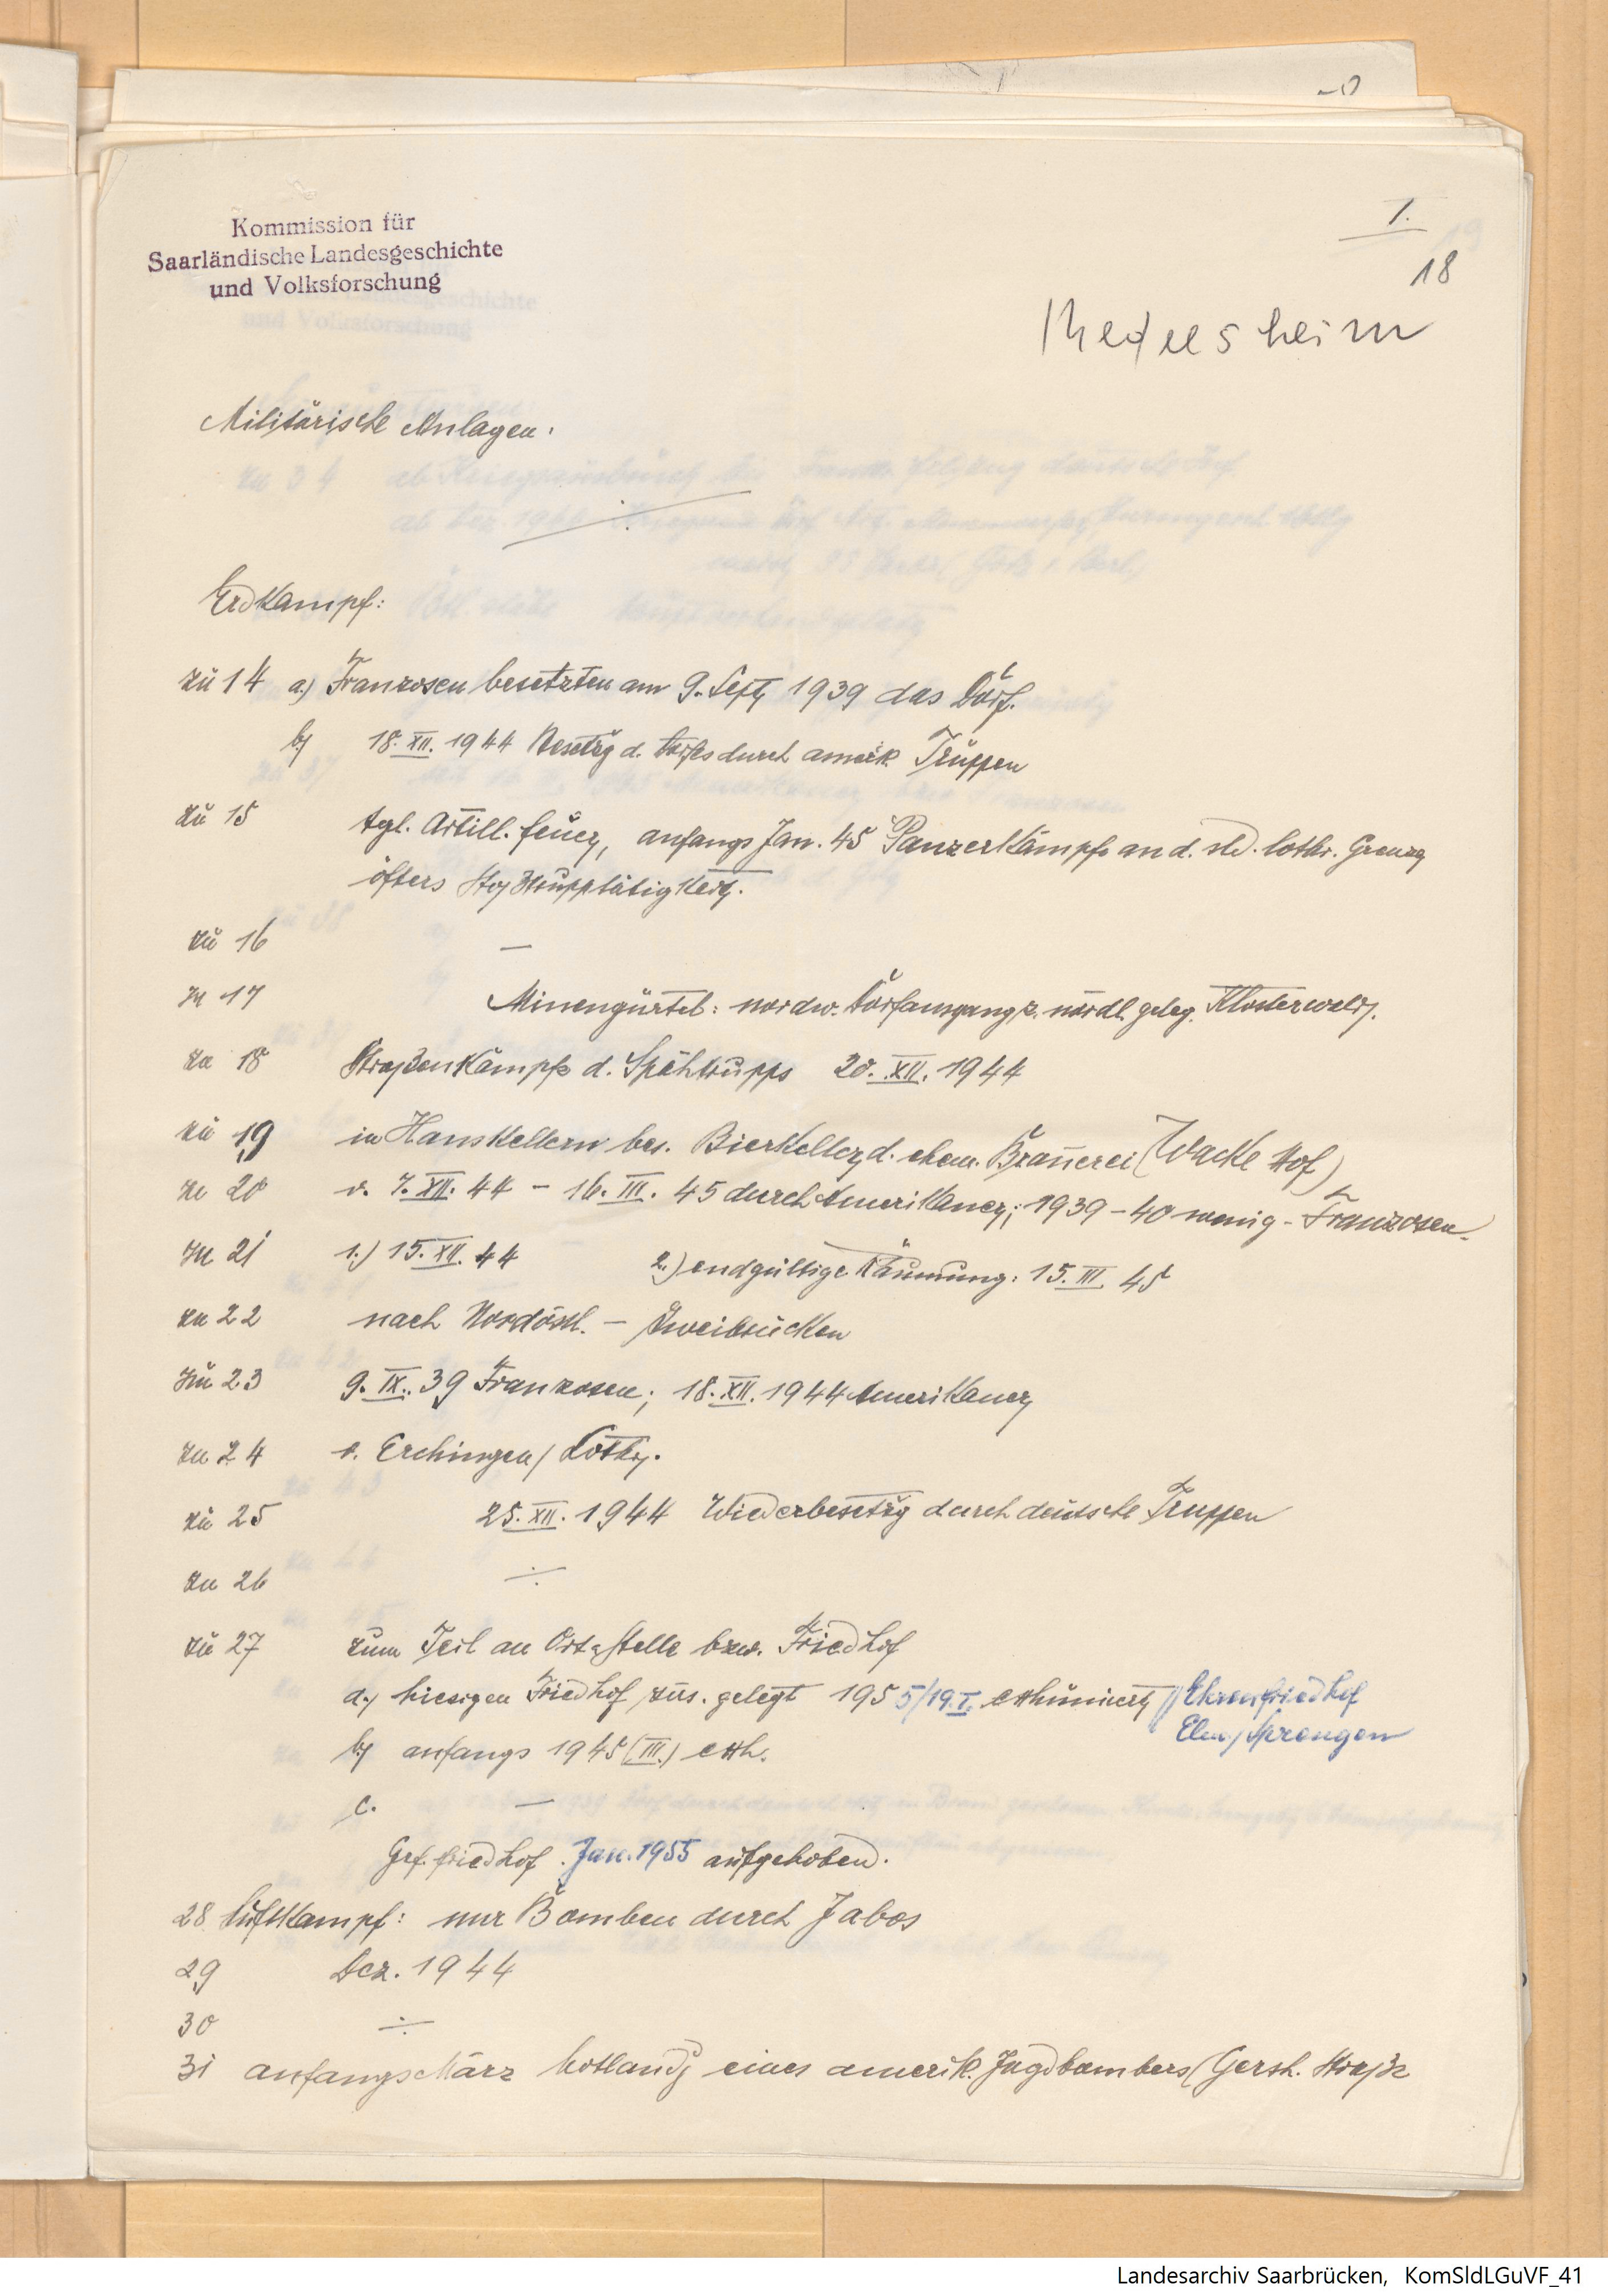 Kommission für
Saarländische Landesgeschichte
und Volksforschung
I.
18
Medelsheim
Militärische Anlagen:
Erdkampf:
zu 14 a.) Franzosen besetzten am 9. Sept. 1939 das Dorf.
b) 18. XII. 1944 Besetzg d. Dorfes durch amerik. Truppen
zu 15 tgl. Artill. feuer, anfangs Jan. 45 Panzerkämpfe an d. lothr. Grenze
öfters Stoßtrupptätigkeit.
zu 16 —
zu 17 Minengürtel: nordw. Dorfausgang z. nördl. geleg. Klosterwald.
zu 18 Straßenkämpfe d. Spähtrupps 20. XII. 1944
zu 19 in Hauskellern bes. Bierkeller d. ehem. Brauerei (Wacke Hof)
zu 20 v. 7. XII. 44 – 16. III. 45 durch Amerikaner; 1939–40 wenig – Franzosen.
zu 21 1.) 15. XII. 44 2.) endgültige Räumung: 15. III. 45
zu 22 nach Nordöstl. – Zweibrücken
zu 23 9. IX. 39 Franzosen; 18. XII. 1944 Amerikaner
zu 24 v. Erchingen / Lothr.
zu 25 25. XII. 1944 Wiederbesetzg durch deutsche Truppen
zu 26 ÷
zu 27 zum Teil an Ort u. Stelle bzw. Friedhof
a.) hiesigen Friedhof zus. gelegt 1955/19. I. exhumiert // Ehrenfriedhof
b) anfangs 1945 (III.) exh.
c. —
Gef. friedhof Jan. 1955 aufgehoben.
28 Luftkampf: nur Bomben durch Jabos
29 Dez. 1944
30 ÷
31 anfangs März Notlandg eines amerik. Jagdbombers (Gersh. Straße
Landesarchiv Saarbrücken, KomSldLGuVF_41